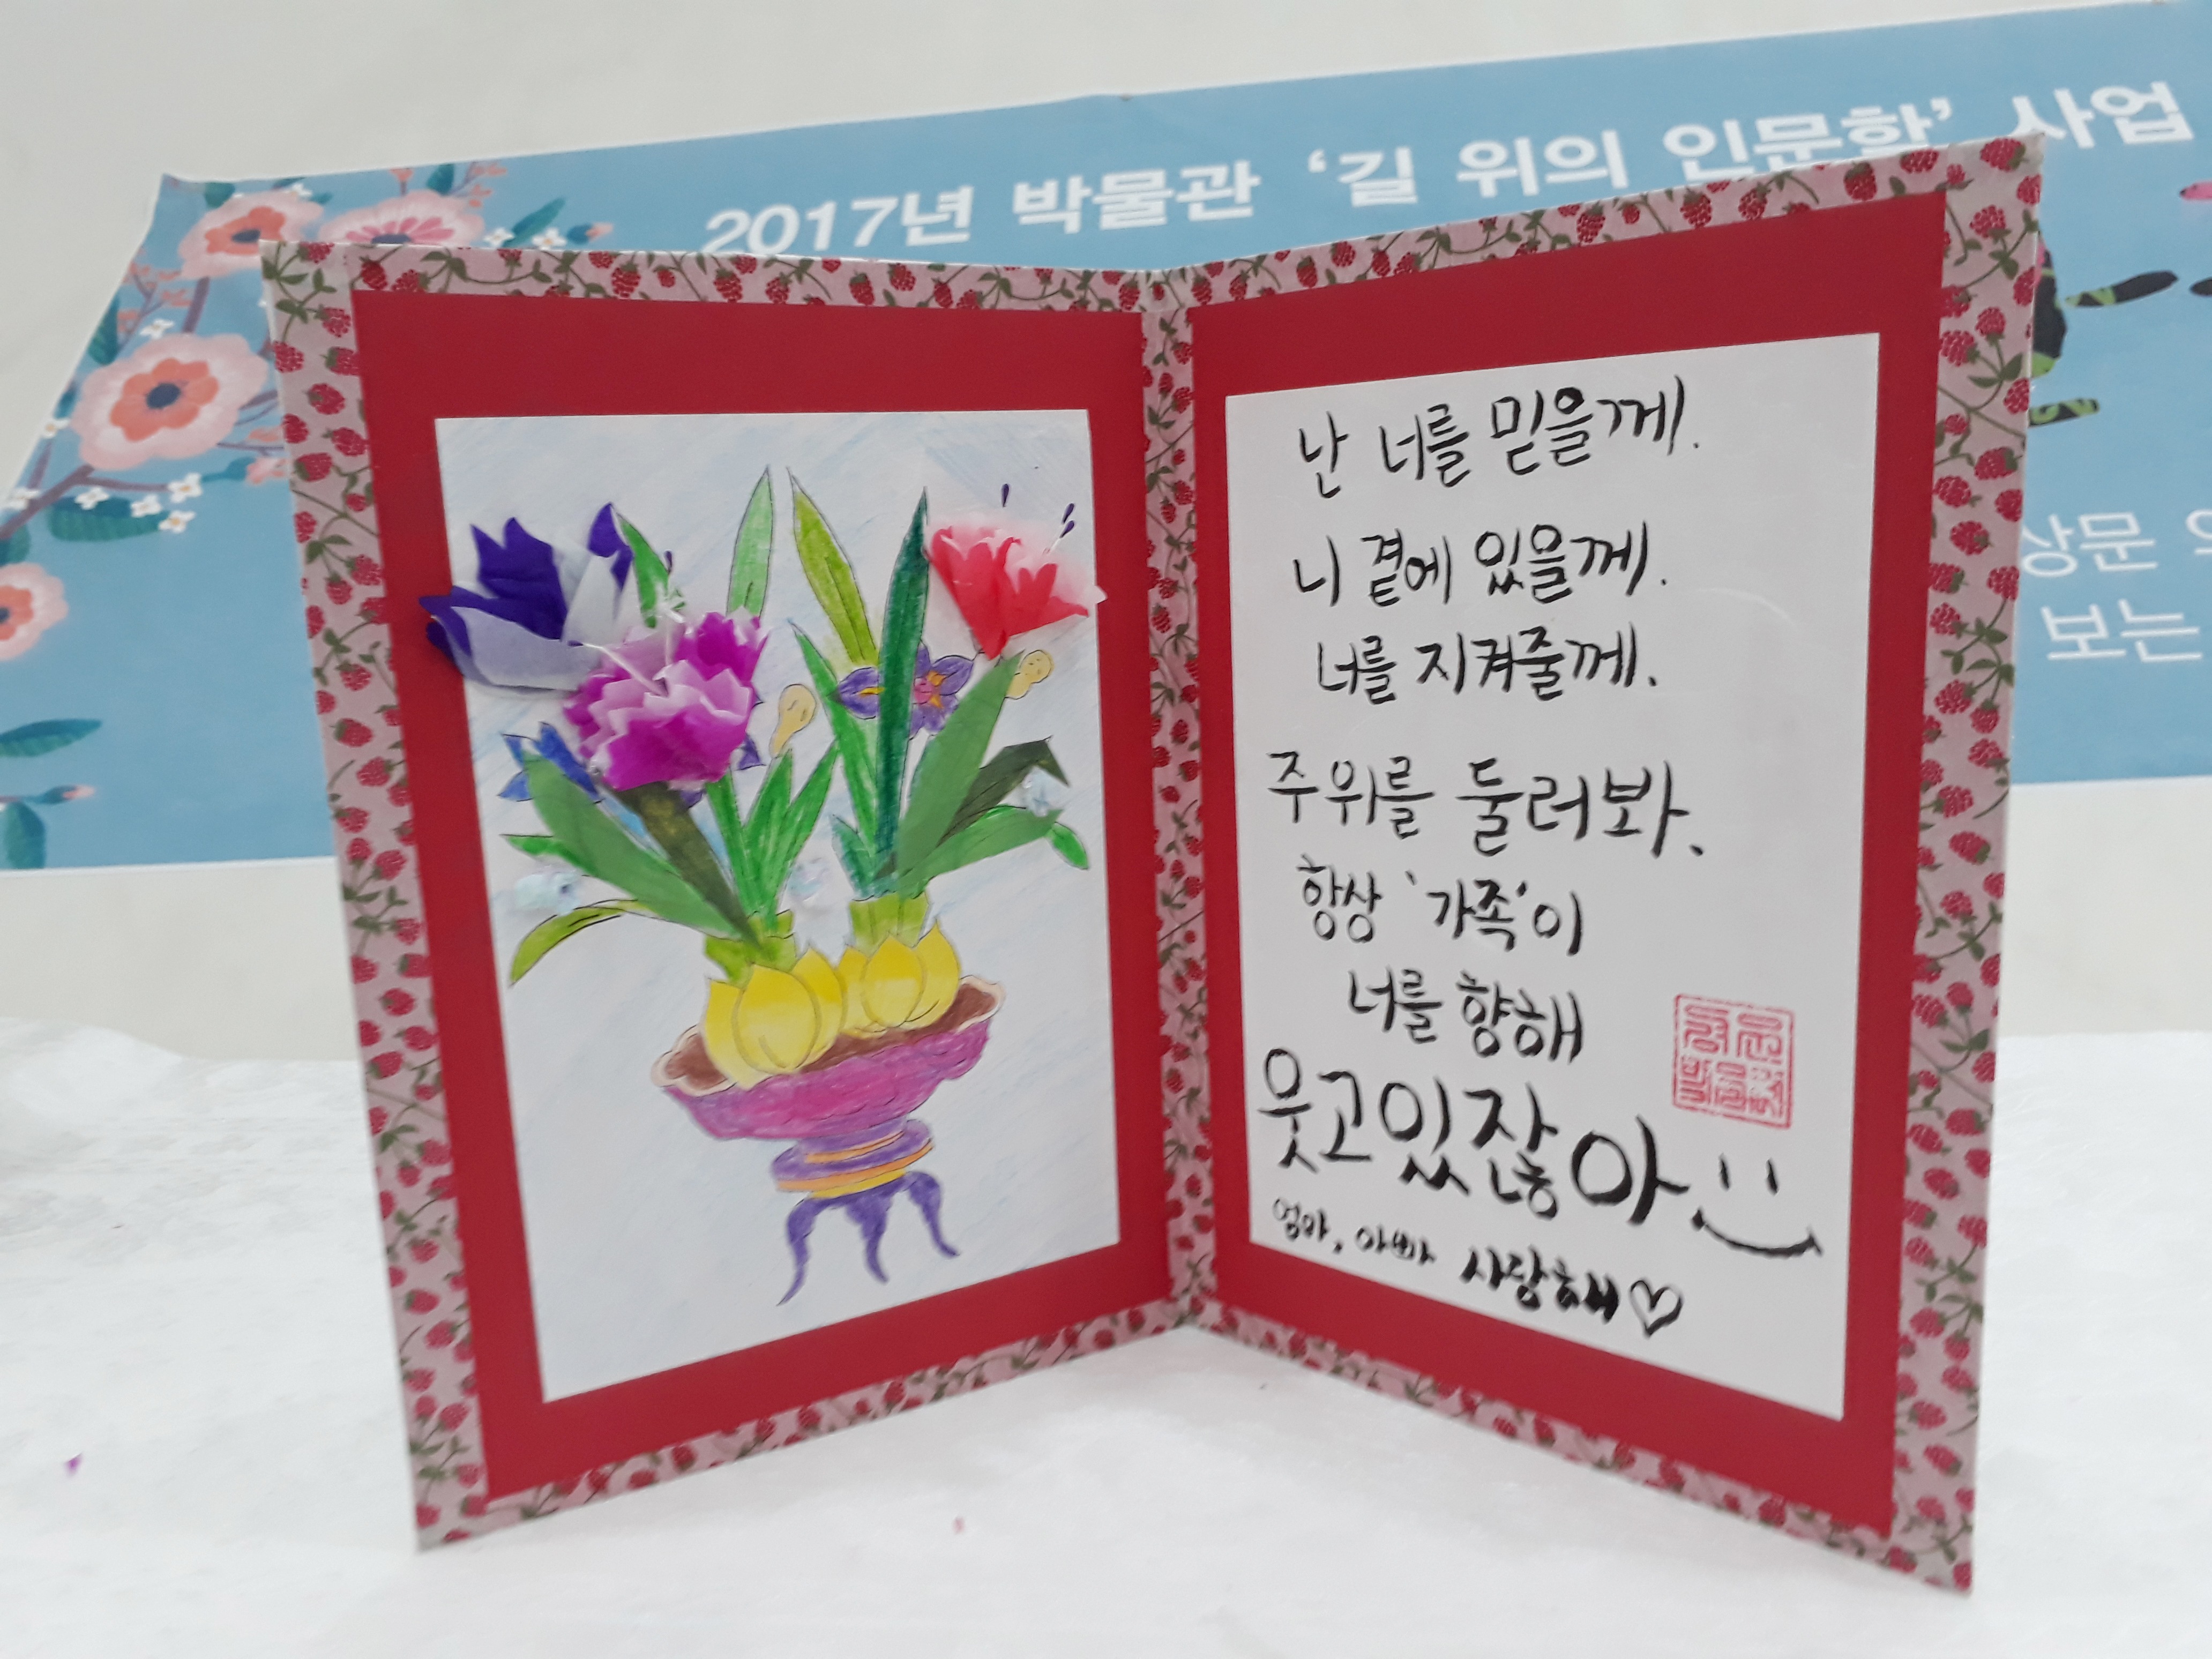 2017년 박물관 '길 위의 인문학' 사업
상문
보는
난 너를 믿을께.
니 곁에 있을께.
너를 지켜줄께.
주위를 둘러봐.
항상 '가족'이
너를 향해
웃고있잖아
엄마, 아빠 사랑해♡